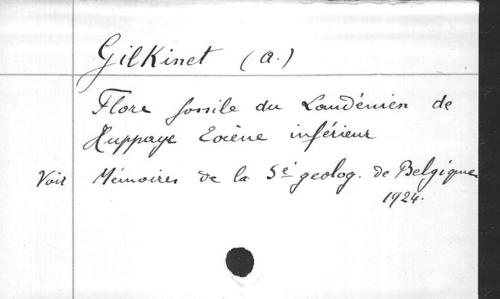 Gilkinet (A.)
Flore fossile du Landénien de
Huppaye Eocène inférieur
Voir Mémoires de la Sé geolog. de Belgique
1924.